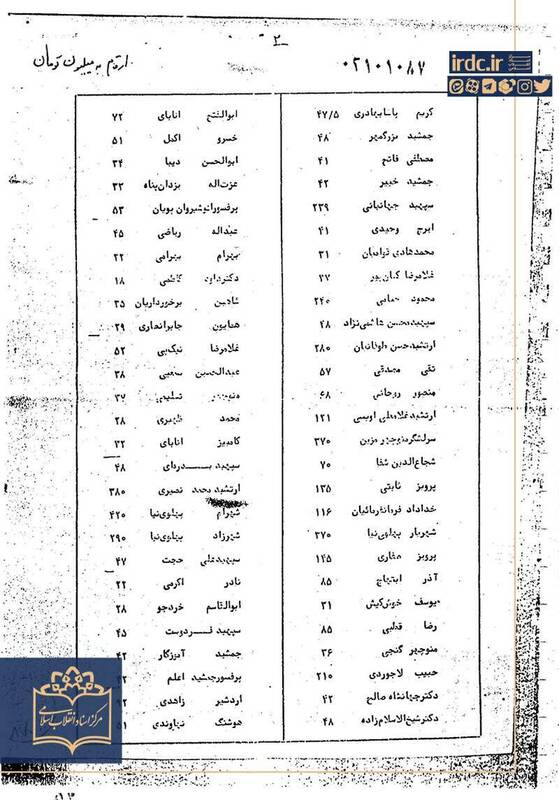 ۲
irdc.ir
۰۲۱۰۱۰۸۷
ارقام به میلیون تومان
کریم پاشابهادری ۴۷/۵
جمشید بزرگمهر ۴۸
مصطفی فاتح ۴۱
جمشید خبیر ۴۲
سپهبد جهانبانی ۲۳۹
ایرج وحیدی ۴۱
محمدهادی ۳۱
غلامرضا کیان‌پور ۳۷
محمود ۲۴۰
سپهبد محسن هاشمی‌نژاد ۴۸
ارتشبد حسن طوفانیان ۲۸۰
تقی مصدقی ۵۷
منصور روحانی ۶۸
ارتشبد غلامعلی اویسی ۱۲۱
سرلشگر منوچهر مزین ۳۷۰
شجاع‌الدین شفا ۷۰
پرویز ثابتی ۱۳۵
خداداد فرمانفرمائیان ۱۱۶
شهریار پهلوی‌نیا ۳۷۰
پرویز ۱۴۵
آذر ابتهاج ۸۵
یوسف خوش‌کیش ۳۱
رضا قطبی ۸۵
منوچهر گنجی ۳۶
حبیب لاجوردی ۲۱۰
دکتر جهانشاه صالح ۴۲
دکتر شیخ‌الاسلام‌زاده ۴۸
ابوالفتح اتابای ۷۲
خسرو اکمل ۵۱
ابوالحسن دیبا ۳۴
عزت‌اله یزدان‌پناه ۳۳
پرفسور انوشیروان پویان ۵۳
عبداله ریاضی ۴۵
بهرام بهرامی ۲۲
دکتر داود کاظمی ۱۸
شاهین برخورداریان ۳۵
همایون جابرانصاری ۲۹
غلامرضا نیک‌پی ۵۲
عبدالحسین سمیعی ۳۸
منوچهر تسلیمی ۳۷
محمد ۲۸
کامبیز اتابای ۳۲
سپهبد بدره‌ای ۴۸
ارتشبد محمد نصیری ۳۸۰
شهرام پهلوی‌نیا ۴۲۰
شهرزاد پهلوی‌نیا ۲۹۰
سپهبد علی حجت ۴۷
نادر اکرمی ۲۲
ابوالقاسم خردجو ۲۸
سپهبد فردوست ۴۵
جمشید آموزگار ۴۲
پرفسور جمشید اعلم
اردشیر زاهدی
هوشنگ نهاوندی
مرکز اسناد انقلاب اسلامی